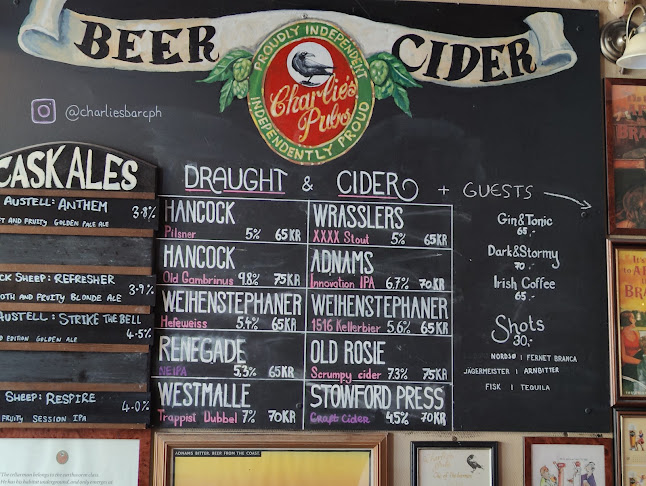 BEER
CIDER
PROUDLY INDEPENDENT
Charlie's
Pubs
INDEPENDENTLY PROUD
@charliesbarcph
CASK ALES
AUSTELL: ANTHEM 3.8%
AND FRUITY GOLDEN PALE ALE
SHEEP: REFRESHER 3.9%
AND FRUITY BLONDE ALE
AUSTELL: STRIKE THE BELL 4.5%
EDITION GOLDEN ALE
SHEEP: RESPIRE 4.0%
FRUITY SESSION IPA
DRAUGHT & CIDER + GUESTS
HANCOCK
Pilsner 5% 65KR
WRASSLERS
XXXX Stout 5% 65KR
HANCOCK
Old Gambrinus 9.8% 75KR
ADNAMS
Innovation IPA 6.7% 70KR
WEIHENSTEPHANER
Hefeweiss 5.4% 65KR
WEIHENSTEPHANER
1516 Kellerbier 5.6% 65KR
RENEGADE
NEIPA 5.3% 65KR
OLD ROSIE
Scrumpy cider 7.3% 75KR
WESTMALLE
Trappist Dubbel 7% 70KR
STOWFORD PRESS
Craft Cider 4.5% 70KR
Gin&Tonic
65.-
Dark&Stormy
70.-
Irish Coffee
65.-
Shots
30.-
NORDSØ | FERNET BRANCA
JÄGERMEISTER | ARNBITTER
FISK | TEQUILA
ADNAMS BITTER. BEER FROM THE COAST